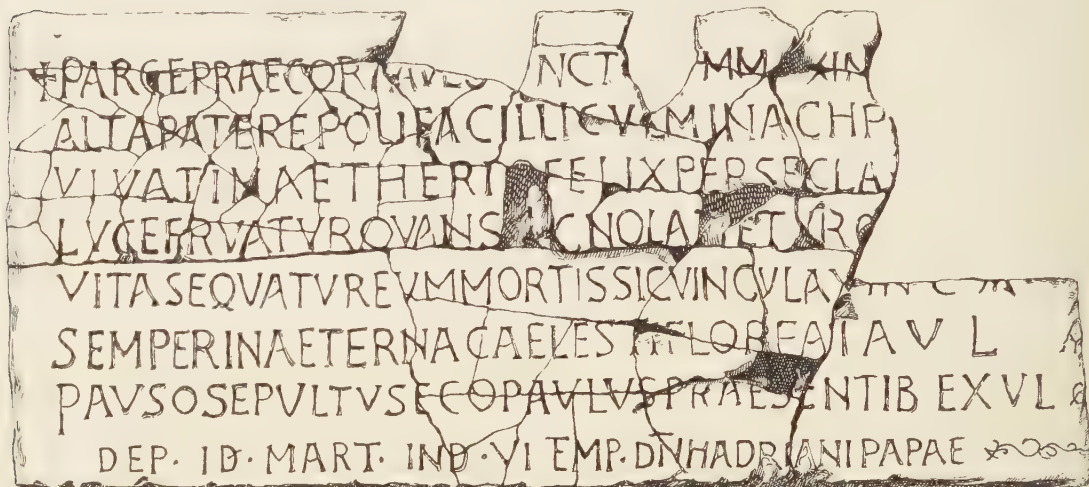 +PARCEPRAECOR AVLO NCT MM XIN
ALTAPATEREPOLIFACILLICVLMINACHP
VIVATINAETHERI FELIXPERSECLA
LVCEFRVATVROVANSAGNOLAT ETVRO
VITASEQVATVREVMMORTISSICVINCVLAVINC
SEMPERINAETERNACAELESTIFLOREATAVL
PAVSOSEPVLTVSECOPAVLVSPRAESENTIB EXVL
DEP· ID· MART· IND·VI TEMP·DN̄HADRIANIPAPAE